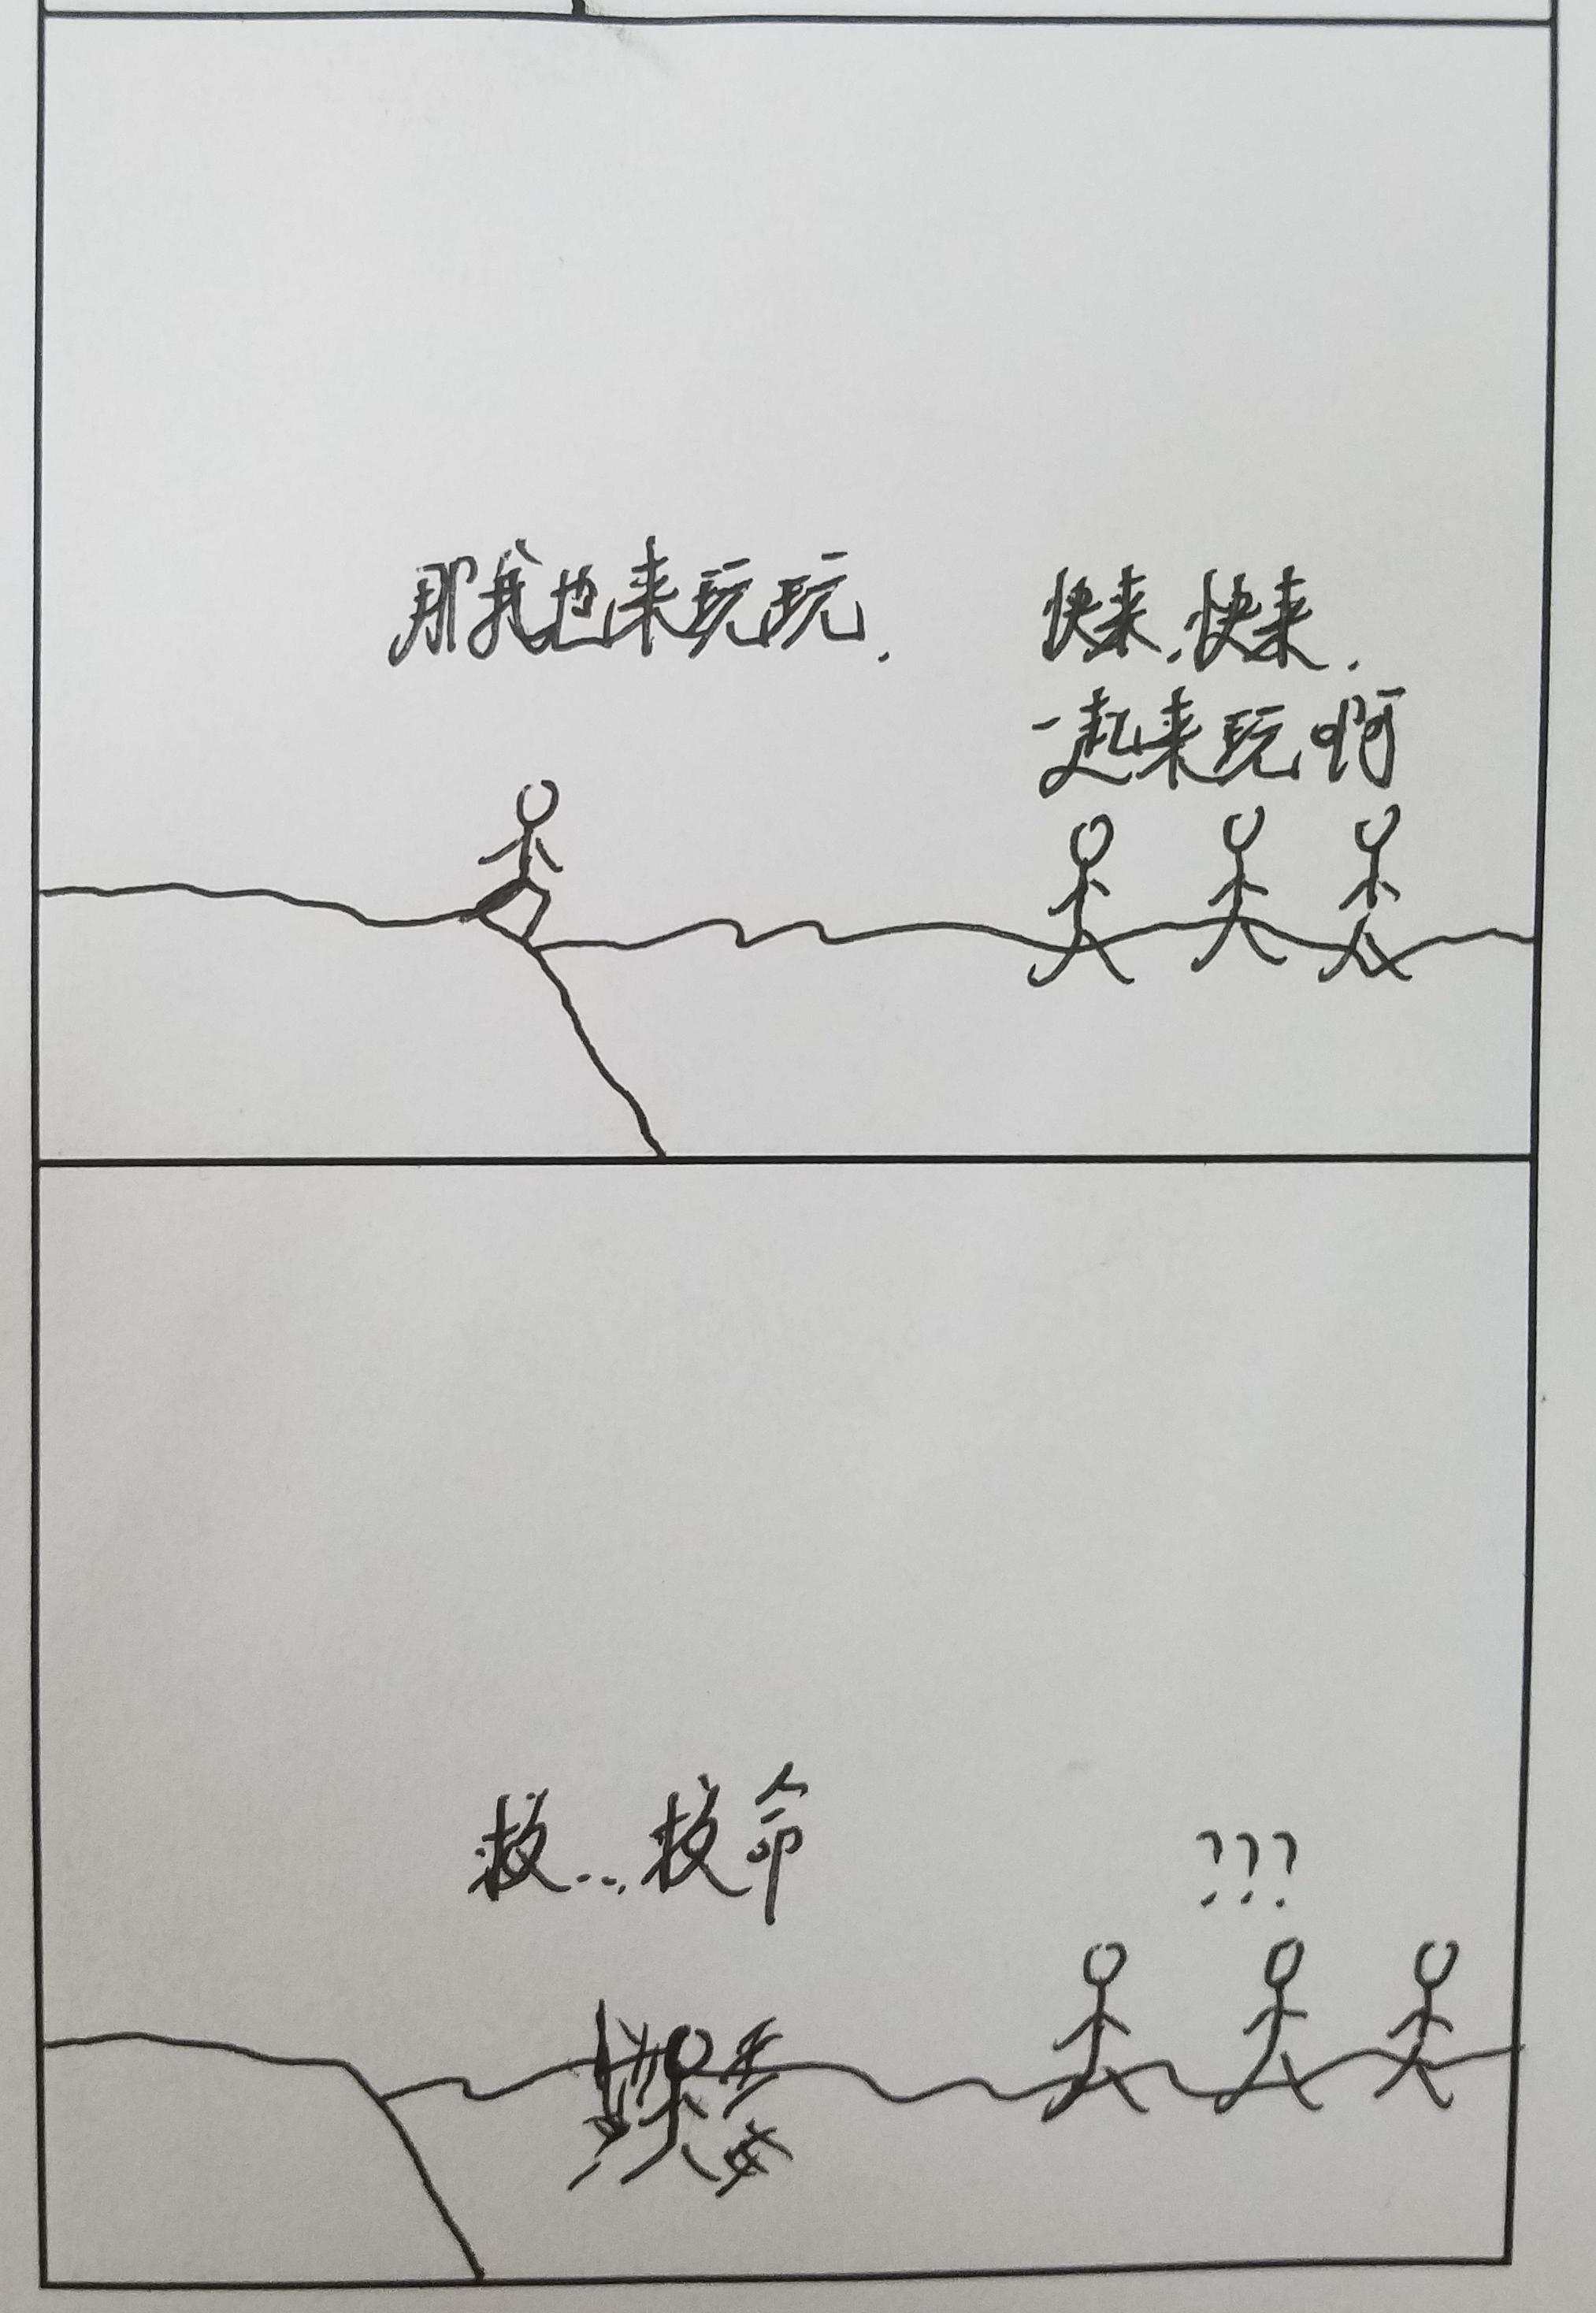 那我也来玩玩.
快来.快来.
一起来玩啊
救...救命
???